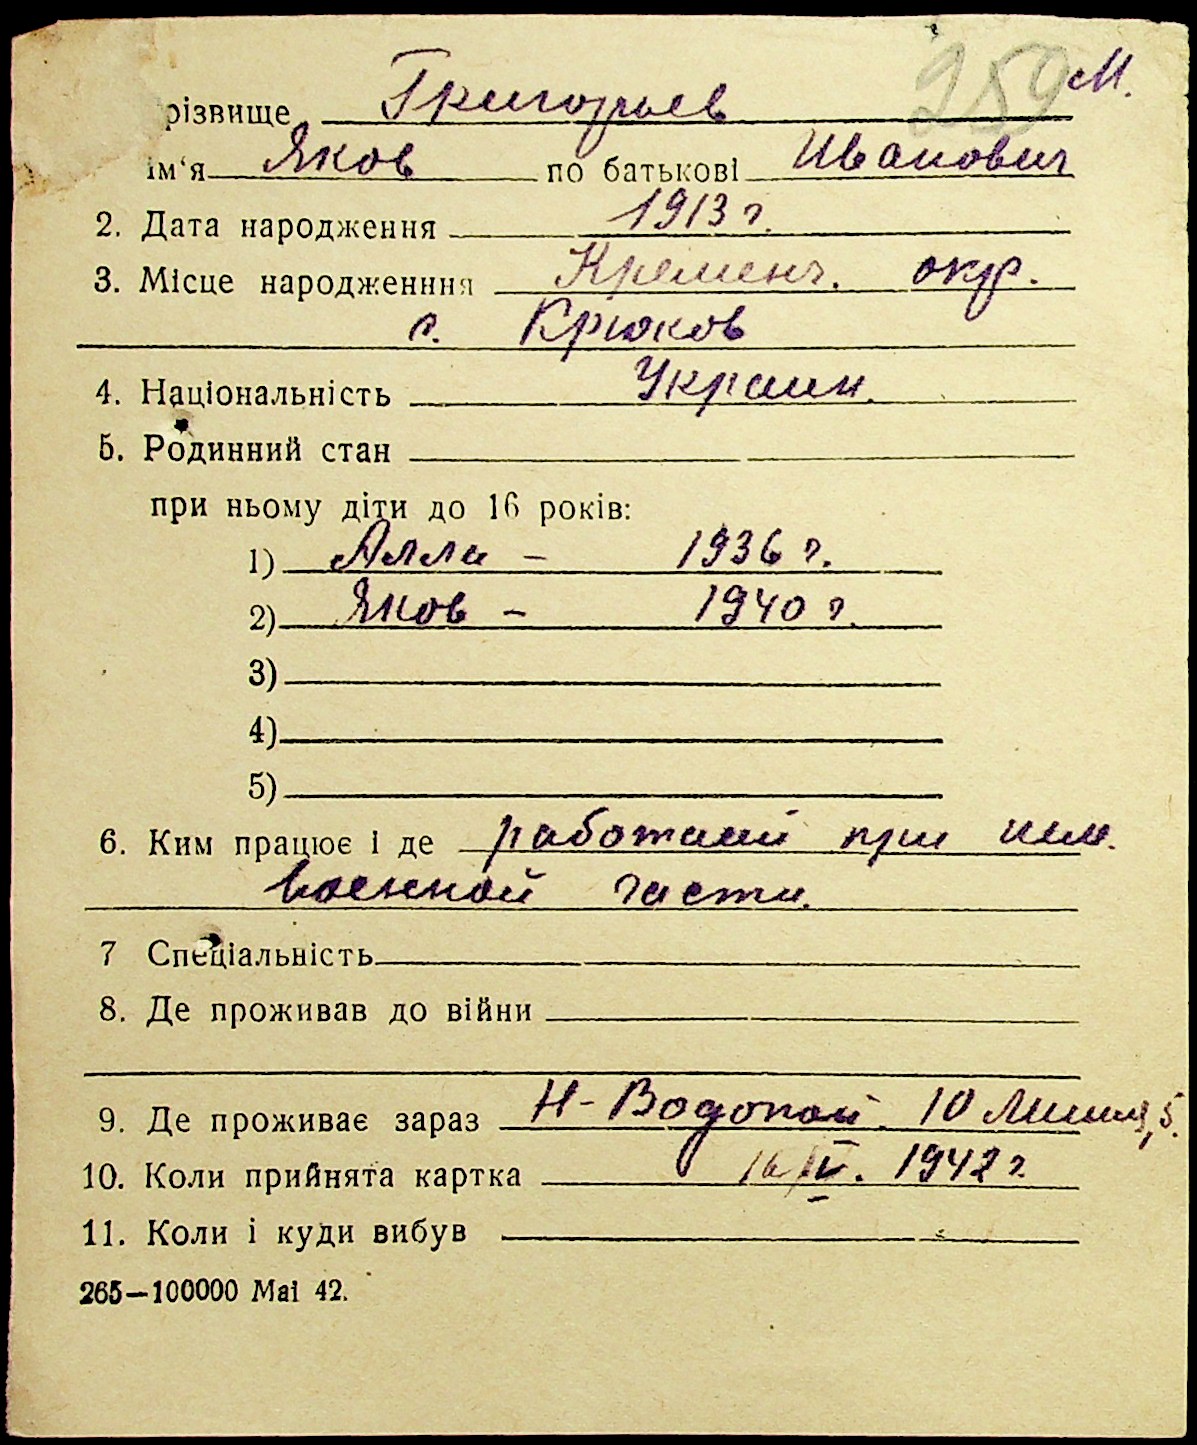 259 М.
різвище Григорьев
ім'я Яков по батькові Иванович
2. Дата народження 1913 г.
3. Місце народженння Кременч. окр.
с. Крюков
4. Національність Украин.
5. Родинний стан
при ньому діти до 16 років:
1) Алла - 1936 г.
2) Яков - 1940 г.
3)
4)
5)
6. Ким працює і де при нем.
военной части.
7 Спеціальність
8. Де проживав до війни
9. Де проживає зараз Н-Водопой 10 Линия, 5.
10. Коли прийнята картка 16/IV. 1942 г.
11. Коли і куди вибув
265—100000 Mai 42.